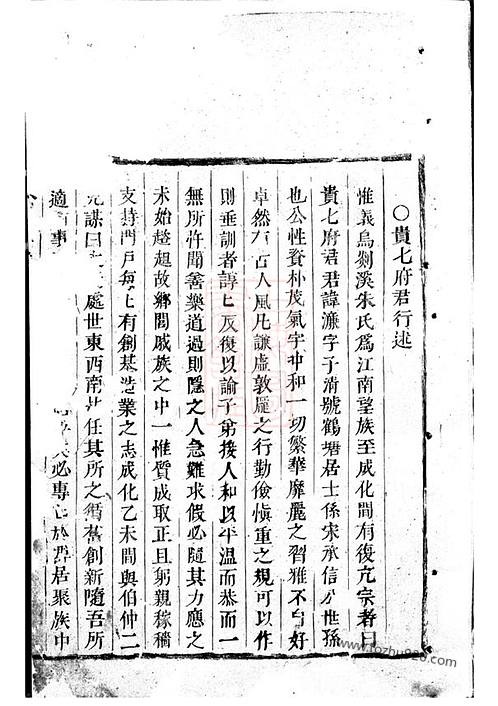 ○貴七府君行述
惟義烏剡溪朱氏為江南望族至成化間有復亢宗者曰
貴七府君君諱濂字子清號鶴塘居士係宋承信 世孫
也公性資朴茂氣宇中和一切繁華靡麗之習雅不 好
卓然有古人風凡謙虛敦龐之行勤儉慎重之規可以作
則垂訓者諄上反復以諭子弟接人和以平温而恭而一
無所忤聞善樂道過則隱之人急難求假必隨其力應之
未始趑趄故鄉閭戚族之中一惟質成取正且躬親稼穡
支持門戶每上有創基造業之志成化乙未間與伯仲二
兄謀曰 處世東西南北任其所之循舊創新隨吾所
適 事 必專 於 居聚族中
www.fozhu920.com